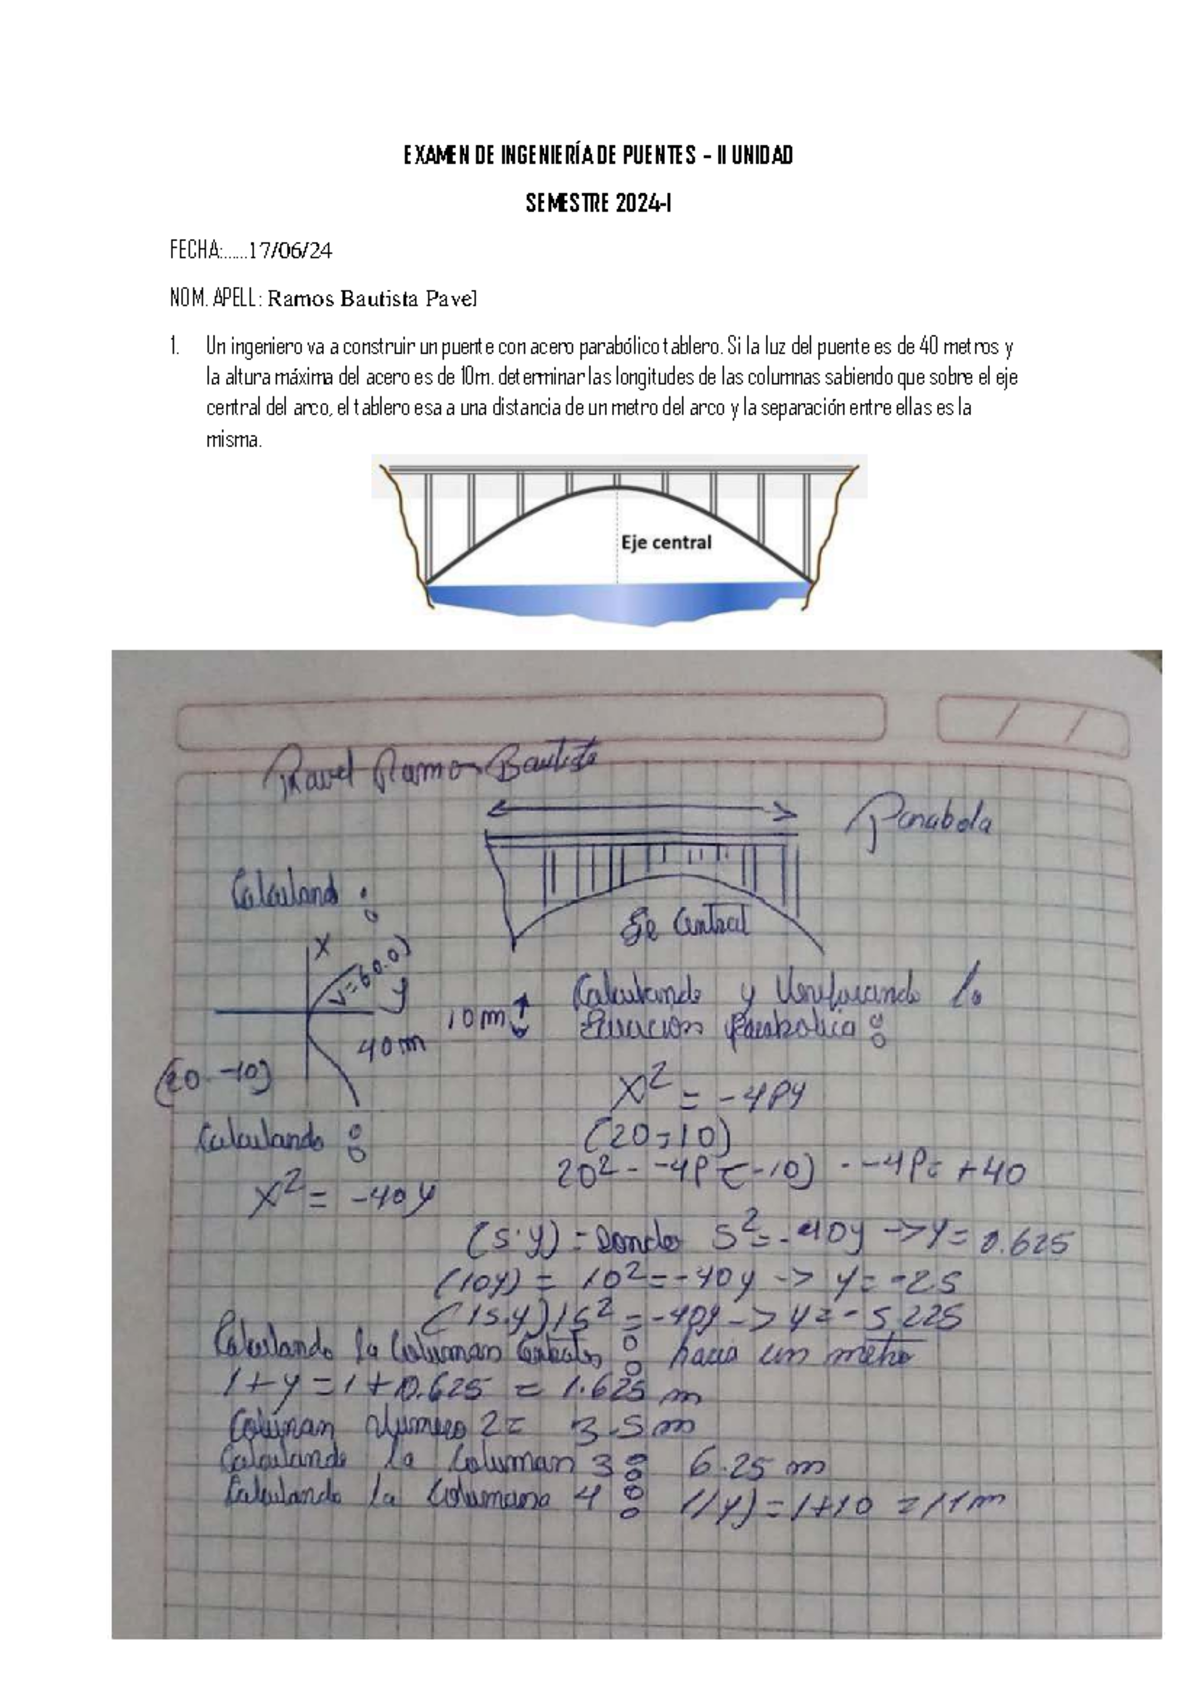 EXAMEN DE INGENIERÍA DE PUENTES – II UNIDAD
SEMESTRE 2024-I
FECHA:......17/06/24
NOM. APELL: Ramos Bautista Pavel
1. Un ingeniero va a construir un puente con acero parabólico tablero. Si la luz del puente es de 40 metros y
la altura máxima del acero es de 10m. determinar las longitudes de las columnas sabiendo que sobre el eje
central del arco, el tablero esa a una distancia de un metro del arco y la separación entre ellas es la
misma.
Eje central
Pavel Ramos Bautista
Parabola
Calculand :
Eje Central
X
V=(0.0)
y
10 m
40 m
(20.-10)
Calculando y Verificando la
Ecuacion parabolica :
X² = -4Py
(20,10)
Calculando :
20² = -4P(-10) = -4P = +40
X² = -40y
(5.y) = Donde 5² = -40y -> y = 0.625
(10y) = 10² = -40y -> y = -2.5
(15.y) 15² = -40y -> y = -5.225
Calculando la Columnan : hacia un metro
1 + y = 1 + 0.625 = 1.625 m
Colunan Numero 2 = 3.5 m
Calculando la Columan 3 : 6.25 m
Calculando la Columana 4 : (1y) = 1+10 = 11m